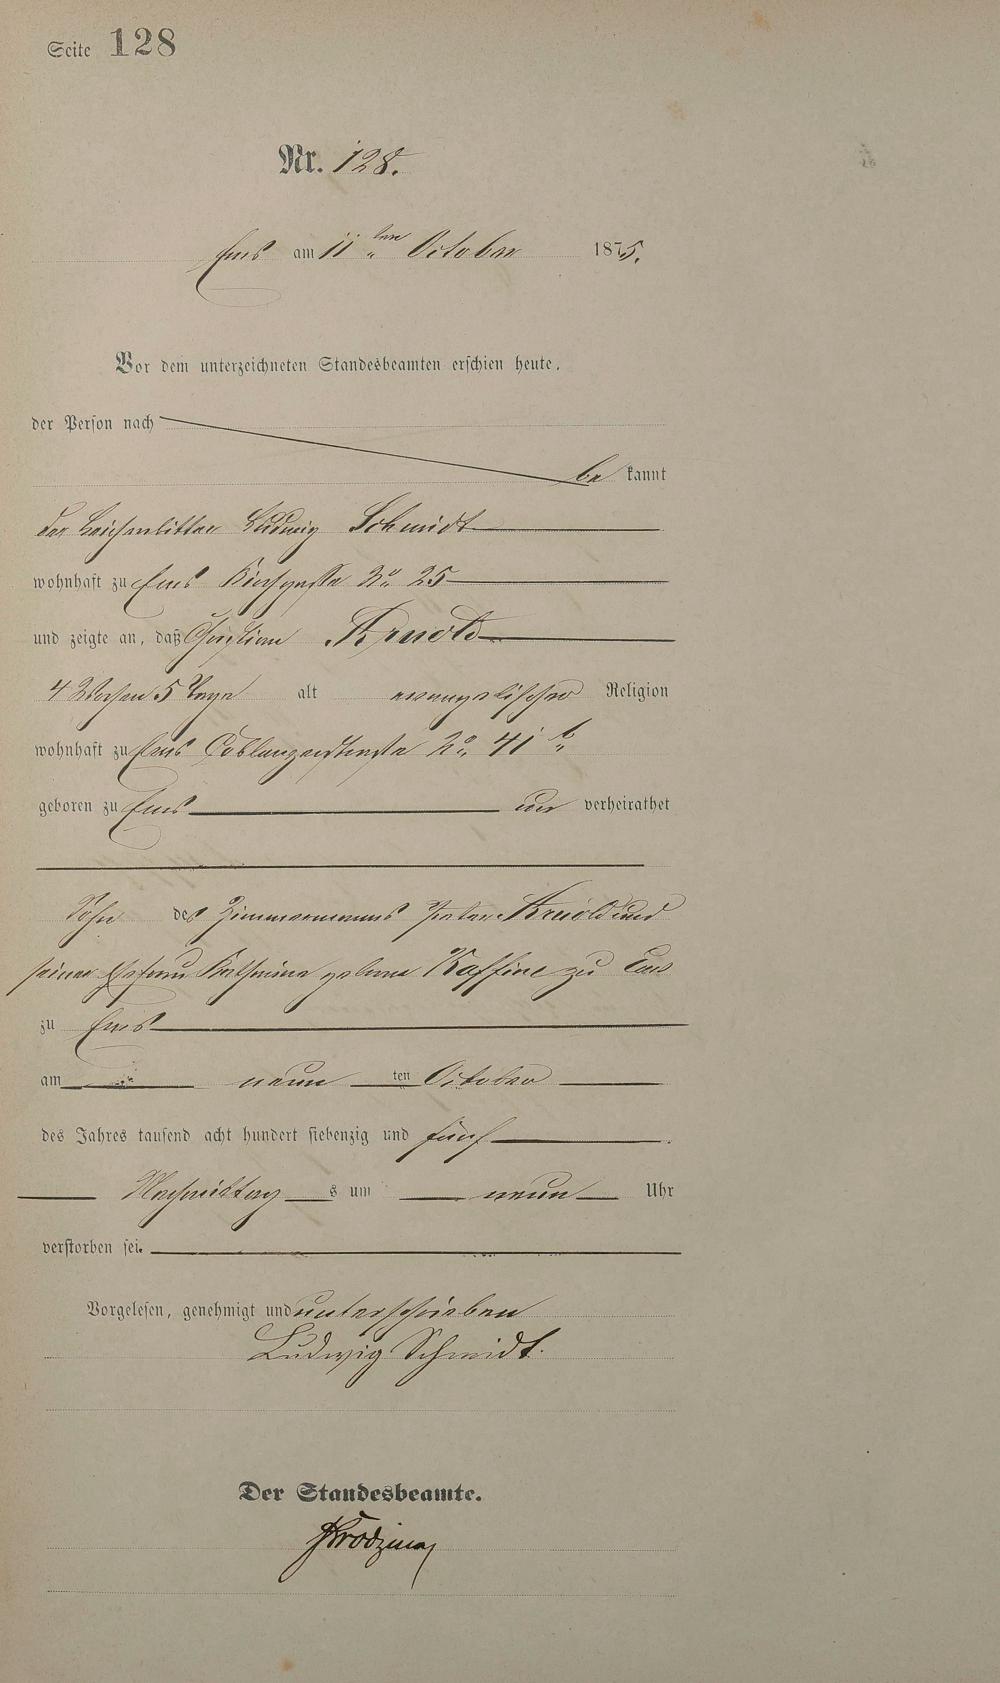 Seite 128
Nr. 128.
Ems am 11ten October 1875.
Vor dem unterzeichneten Standesbeamten erschien heute,
der Person nach
be kannt
der Leichenbitter Ludwig Schmidt
wohnhaft zu Ems Kirchgasse No. 25
und zeigte an, daß Christian Arnold
4 Wochen 5 Tage alt evangelischer Religion
wohnhaft zu Ems Coblenzerstrasse No. 41 b
geboren zu Ems un verheirathet
Sohn des Zimmermanns Peter Arnold und
seiner Ehefrau Katharina geborne Kaffine zu Ems
zu Ems
am neun ten October
des Jahres tausend acht hundert siebenzig und fünf
Nachmittag s um neun Uhr
verstorben sei.
Vorgelesen, genehmigt und unterschrieben
Ludwig Schmidt.
Der Standesbeamte.